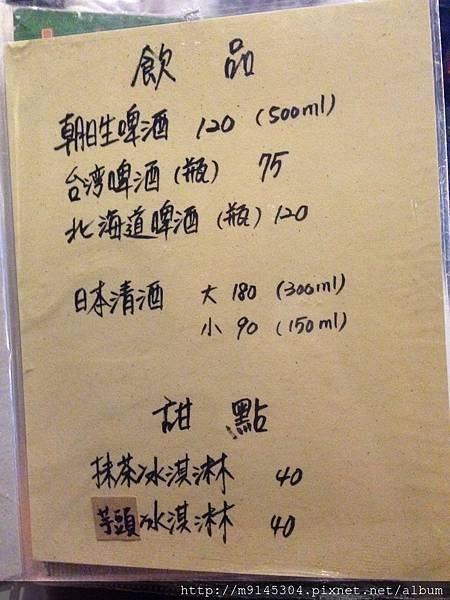 飲 品
朝日生啤酒 120 (500ml)
台湾啤酒(瓶) 75
北海道啤酒(瓶) 120
日本清酒 大 180 (300ml)
小 90 (150ml)
甜 點
抹茶冰淇淋 40
芋頭冰淇淋 40
http://m9145304.pixnet.net/album